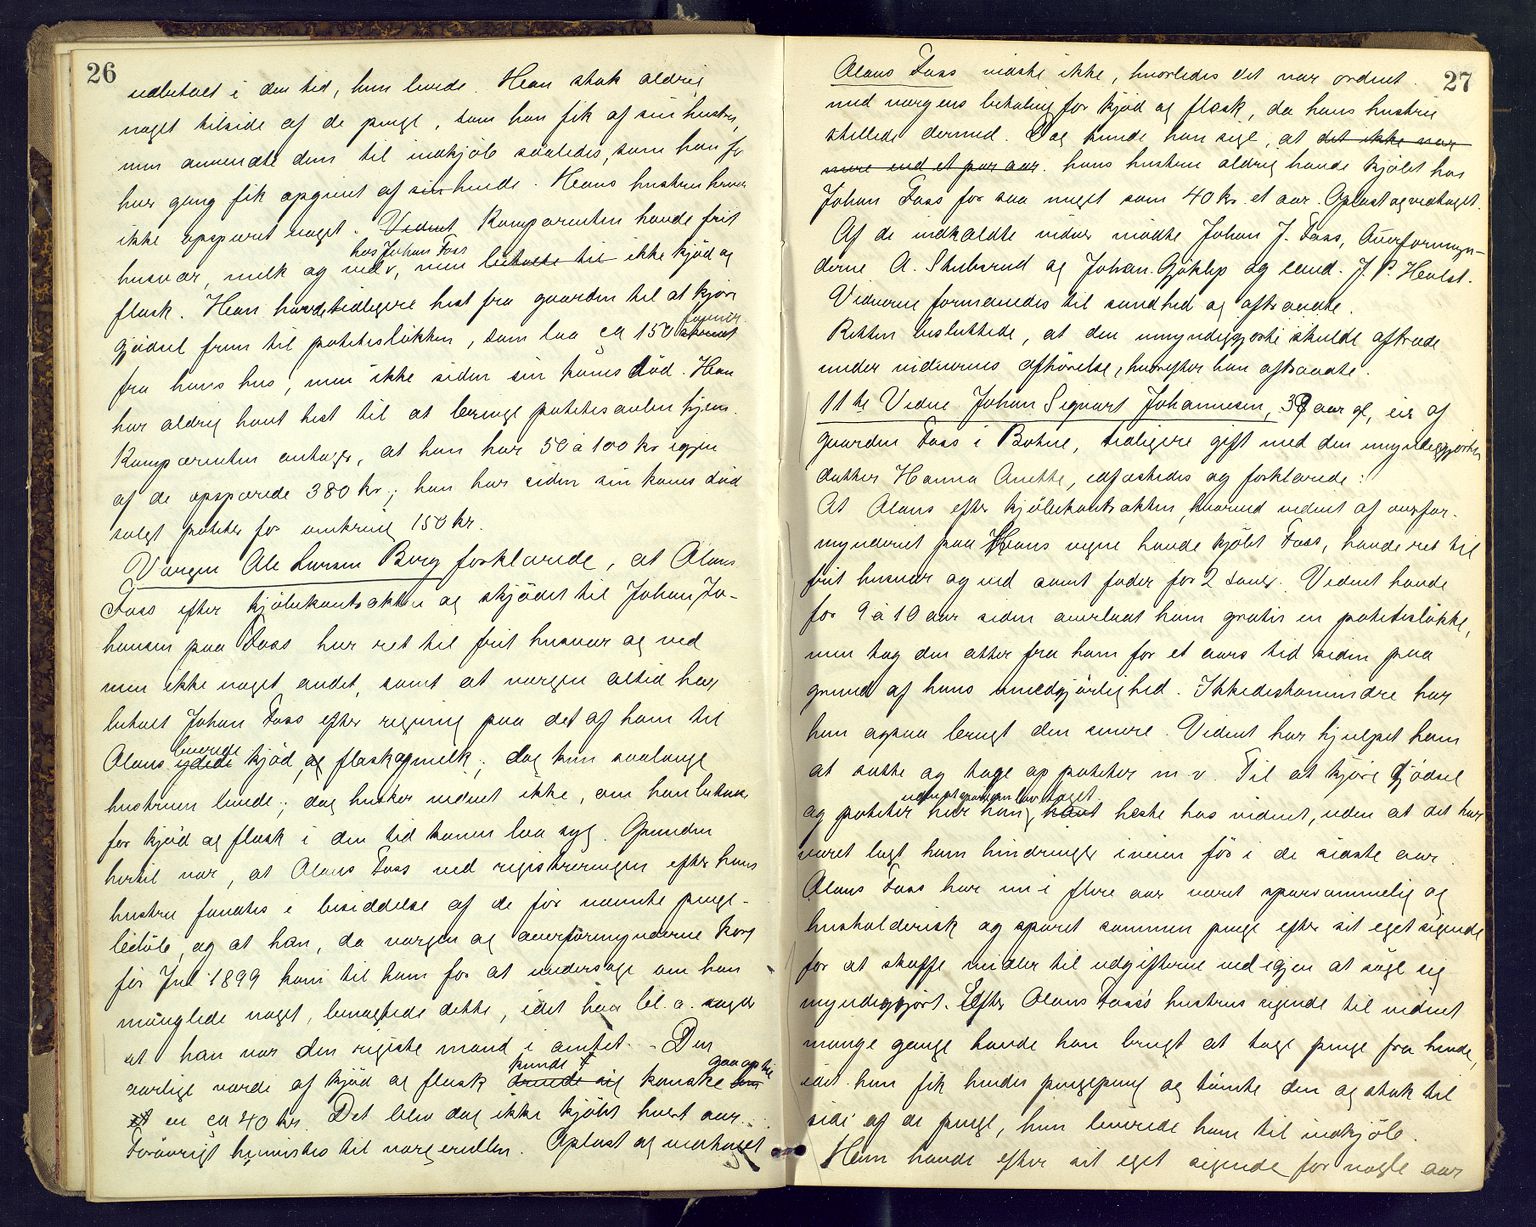 26
udbetalt i den tid, hun levede. Han stak aldrig
noget tilside af de penge, som han fik af sin hustru,
men anvendte dem til indkjöb saaledes, som han for
hver gang fik opgivet af sin hende. Hans hustru havde
ikke opsparet noget. Vidnet Komparenten havde frit
hos Johan Foss
husvær, melk og ved, men betalte til ikke kjöd og
flesk. Han havde tidligere hest fra gaarden til at kjöre
gjödsel frem til potetislökken, som laa ca 150 favner skridt
fra hans hus, men ikke siden sin kones död. Han
har aldrig havt hest til at bringe potetisavlen hjem.
Komparenten antager, at han har 50 à 100 kr igjen
af de opsparede 380 kr; han har siden sin kones död
solgt poteter for omkring 150 kr.
Værgen Ole Larsen Berg forklarede, at Olaus
Foss efter kjöbekontrakten og skjödet til Johan Jo-
hansen paa Foss har ret til frit husvær og ved
men ikke noget andet, samt at værgen altid har
betalt Johan Foss efter regning paa det af ham til
leverede
Olaus ydede kjöd, og flesk og melk; dog kun saalænge
hustruen levede; dog husker vidnet ikke, om han betalte
for kjöd og flesk i den tid konen laa syg. Grunden
hertil var, at Olaus Foss ved registreringen efter hans
hustru fandtes i besiddelse af de för nævnte penge-
belöb, og at han, da værgen og overformynderne kort
för Jul 1899 kom til ham for at undersöge om han
manglede noget, benægtede dette, idet han bl. a. sagde
at han var den rigeste mand i amtet. - Den
kunde gaa op til
aarlige værdi af kjöd og flesk dreiede sig kanske om
et en ca 40 kr. Det blev dog ikke kjöbt hvert aar.
Forövrigt henvistes til værgerullen. Oplæst og vedtaget
27
Olaus Foss vidste ikke, hvorledes det var ordnet
med værgens betaling for kjöd og flesk, da hans hustru
stellede dermed. Dog kunde han sige, at det ikke var
mere end et par aar. hans hustru aldrig havde kjöbt hos
Johan Foss for saa meget som 40 kr. et aar. Oplæst og vedtaget.
Af de indkaldte vidner mödte Johan J. Foss, Overformyn-
derne A. Stubsrud og Johan Gjöklep og cand. J. P. Holst.
Vidnerne formanedes til sandhed og aftraadte.
Retten besluttede, at den umyndiggjorte skulde aftræde
under vidnernes afhörelse, hvorefter han aftraadte.
11te Vidne Johan Sigvart Johannesen, 39 aar gl, eier af
gaarden Foss i Botne, tidligere gift med den umyndiggjortes
datter Hanna Anette, edfæstedes og forklarede:
At Olaus efter kjöbekontrakten, hvorved vidnet af overfor-
mynderiet paa Hans vegne havde kjöbt Foss, havde ret til
frit husvær og ved samt foder for 2 sauer. Vidnet havde
for 9 à 10 aar siden overladt ham gratis en potetislökke,
men tog den atter fra ham for et aars tid siden paa
grund af hans umedgjörlighed. Ikkedestomindre har
han ogsaa brugt den senere. Vidnet har hjulpet ham
at sætte og tage op poteter m v. Til at kjöre gjödsel
taget
og poteter har han havt heste hos vidnet, uden at det har
været lagt ham hindringer i veien för i de sidste aar.
Olaus Foss har nu i flere aar været sparsommelig og
husholderisk og sparet sammen penge efter sit eget sigende
for at skaffe midler til udgifterne ved igjen at söge sig
myndiggjort. Efter Olaus Foss's hustrus sigende til vidnet
mange gange havde han brugt at tage penge fra hende,
idet han fik hendes pengepung og tömte den og stak til
side af de penge, hun leverede ham til indkjöb.
Han havde efter sit eget sigende for nogle aar